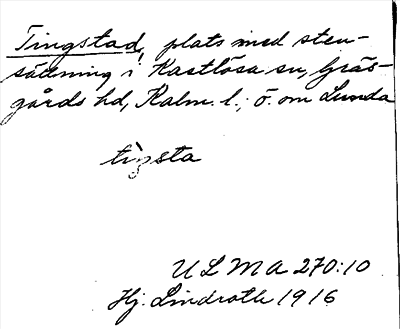 Tingstad, plats med sten-
sättning i Kastlösa sn, Gräs-
gårds hd, Kalm. l.; ö. om Lunda
tiŋsta
ULMA 270:10
Hj. Lindroth 1916